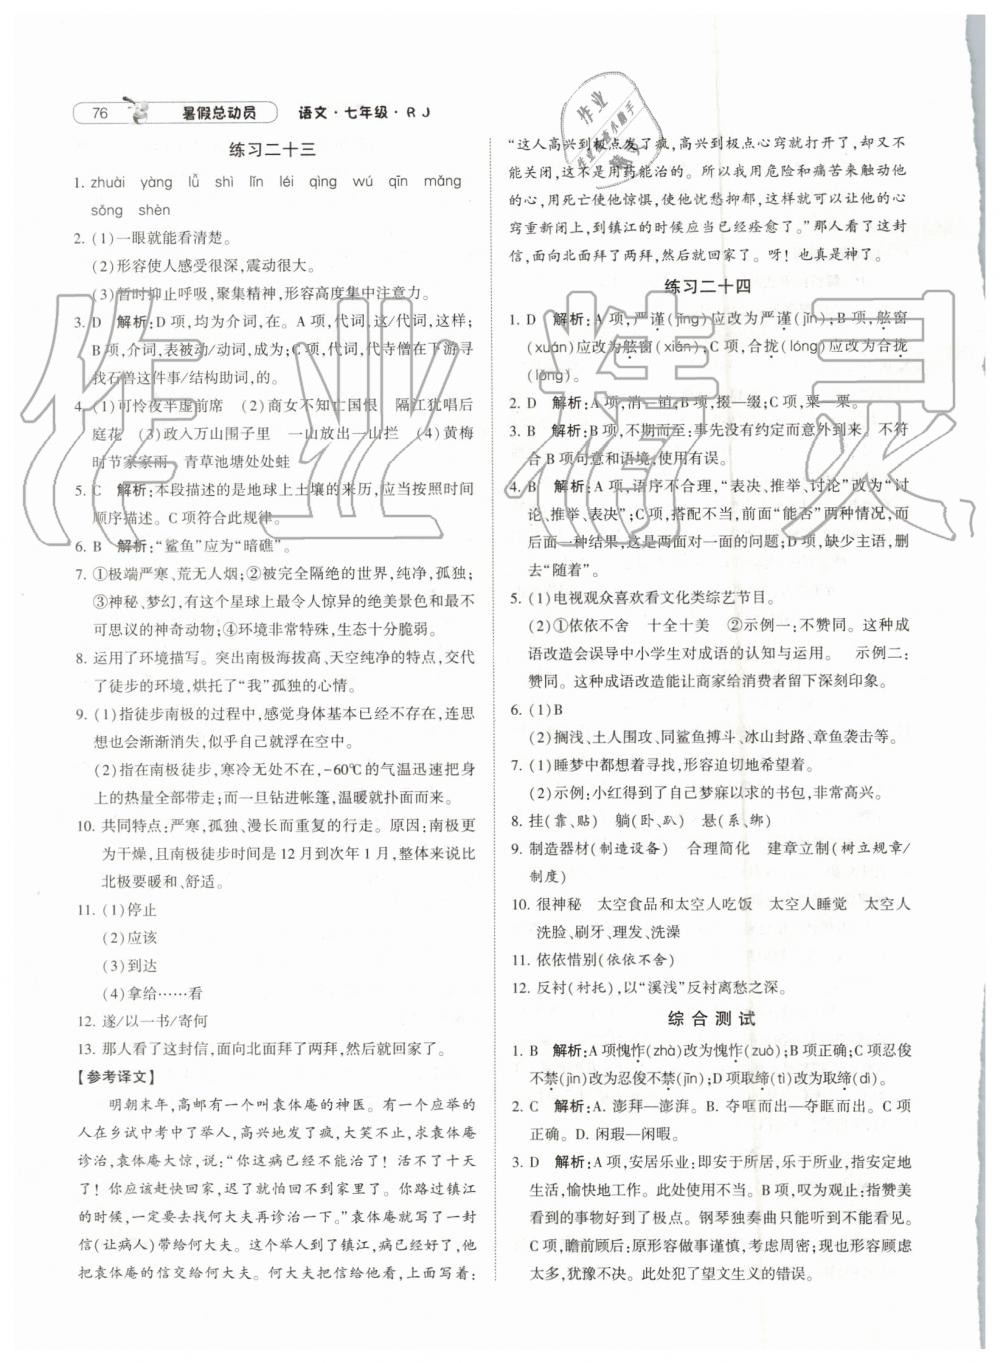 76 暑假总动员 语文·七年级·RJ
练习二十三
1. zhuài yàng lǚ shì lǐn léi qìng wú qīn mǎng
sǒng shèn
2. (1)一眼就能看清楚。
(2)形容使人感受很深,震动很大。
(3)暂时抑止呼吸,聚集精神,形容高度集中注意力。
3. D 解析:D项,均为介词,在。A项,代词,这/代词,这样;
B项,介词,表被动/动词,成为;C项,代词,代寺僧在下游寻
找石兽这件事/结构助词,的。
4. (1)可怜夜半虚前席 (2)商女不知亡国恨 隔江犹唱后
庭花 (3)政入万山围子里 一山放出一山拦 (4)黄梅
时节家家雨 青草池塘处处蛙
5. C 解析:本段描述的是地球上土壤的来历,应当按照时间
顺序描述。C项符合此规律。
6. B 解析:“鲨鱼”应为“暗礁”。
7. ①极端严寒、荒无人烟;②被完全隔绝的世界,纯净,孤独;
③神秘、梦幻,有这个星球上最令人惊异的绝美景色和最不
可思议的神奇动物;④环境非常特殊,生态十分脆弱。
8. 运用了环境描写。突出南极海拔高、天空纯净的特点,交代
了徒步的环境,烘托了“我”孤独的心情。
9. (1)指徒步南极的过程中,感觉身体基本已经不存在,连思
想也会渐渐消失,似乎自己就浮在空中。
(2)指在南极徒步,寒冷无处不在,-60℃的气温迅速把身
上的热量全部带走;而一旦钻进帐篷,温暖就扑面而来。
10. 共同特点:严寒,孤独、漫长而重复的行走。原因:南极更
为干燥,且南极徒步时间是12月到次年1月,整体来说比
北极要暖和、舒适。
11. (1)停止
(2)应该
(3)到达
(4)拿给……看
12. 遂/以一书/寄何
13. 那人看了这封信,面向北面拜了两拜,然后就回家了。
【参考译文】
明朝末年,高邮有一个叫袁体庵的神医。有一个应举的
人在乡试中考中了举人,高兴地发了疯,大笑不止。求袁体庵
诊治,袁体庵大惊,说:“你这病已经不能治了！活不了十天
了！你应该赶快回家,迟了就怕回不到家里了。你路过镇江
的时候,一定要去找何大夫再诊治一下。”袁体庵写了一封
信(让病人)带给何大夫。这个人到了镇江,病已经好了,他
把袁体庵的信交给何大夫。何大夫把信给他看,上面写着:
“这人高兴到极点发了疯,高兴到极点心窍就打开了,而不
能关闭,这不是用药能治的。所以我用危险和痛苦来触动他
的心,用死亡使他惊惧,使他忧愁抑郁,这样就可以让他的心
窍重新闭上,到镇江的时候应当已经痊愈了。”那人看了这封
信,面向北面拜了两拜,然后就回家了。呀！也真是神了。
练习二十四
1. D 解析:A项,严谨(jǐng)应改为严谨(jǐn);B项,舷窗
(xuán)应改为舷窗(xián);C项,合拢(lóng)应改为合拢
(lǒng)。
2. D 解析:A项,消—销;B项,掇—缀;C项,栗—栗。
3. B 解析:B项,不期而至:事先没有约定而意外到来。不符
合B项句意和语境,使用有误。
4. B 解析:A项,语序不合理,“表决、推举、讨论”改为“讨
论、推举、表决”;C项,搭配不当,前面“能否”两种情况,而
后面一种结果,这是两面对一面的问题;D项,缺少主语,删
去“随着”。
5. (1)电视观众喜欢看文化类综艺节目。
(2)①依依不舍 十全十美 ②示例一:不赞同。这种成
语改造会误导中小学生对成语的认知与运用。 示例二:
赞同。这种成语改造能让商家给消费者留下深刻印象。
6. (1)B
(2)搁浅、土人围攻、同鲨鱼搏斗、冰山封路、章鱼袭击等。
7. (1)睡梦中都想着寻找,形容迫切地希望着。
(2)示例:小红得到了自己梦寐以求的书包,非常高兴。
8. 挂(靠、贴) 躺(卧、趴) 悬(系、绑)
9. 制造器材(制造设备) 合理简化 建章立制(树立规章/
制度)
10. 很神秘 太空食品和太空人吃饭 太空人睡觉 太空人
洗脸、刷牙、理发、洗澡
11. 依依惜别(依依不舍)
12. 反衬(衬托),以“溪浅”反衬离愁之深。
综合测试
1. B 解析:A项愧怍(zhà)改为愧怍(zuò);B项正确;C项忍俊
不禁(jìn)改为忍俊不禁(jīn);D项取缔(tì)改为取缔(dì)。
2. C 解析:A. 澎拜—澎湃。B. 夺哐而出—夺眶而出。C项
正确。D. 闲瑕—闲暇。
3. D 解析:A项,安居乐业:即安于所居,乐于所业,指安定地
生活,愉快地工作。此处使用不当。B项,叹为观止:指赞美
看到的事物好到了极点。钢琴独奏曲只能听到不能看到。
C项,瞻前顾后:原形容做事谨慎,考虑周密;现也形容顾虑
太多,犹豫不决。此处犯了望文生义的错误。
作业精灵